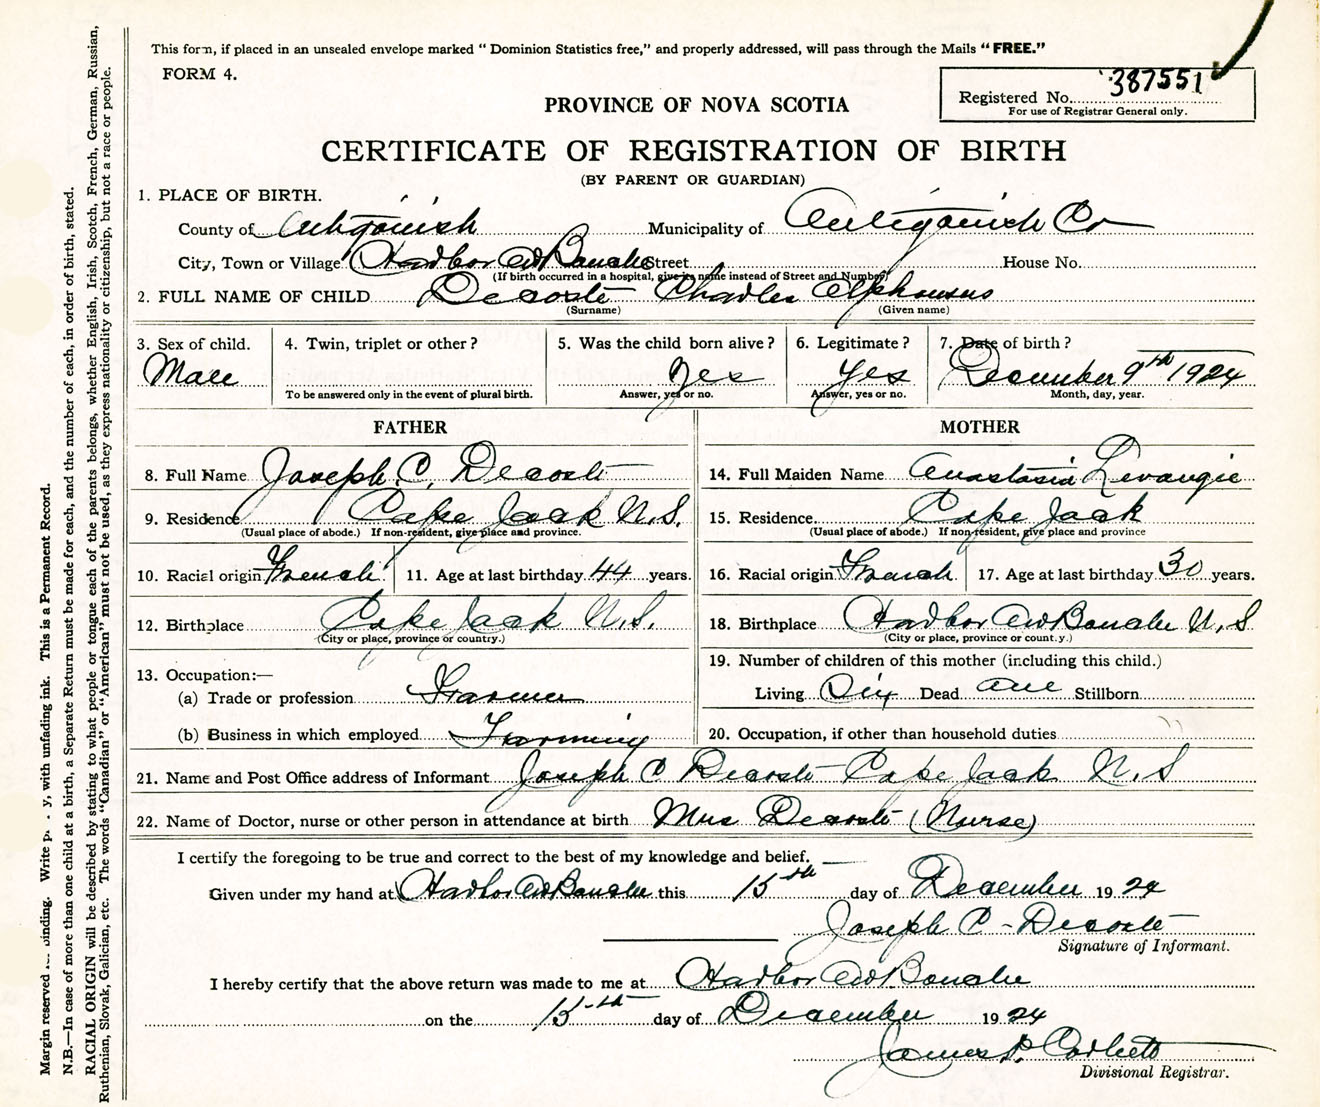 This form, if placed in an unsealed envelope marked “ Dominion Statistics free,” and properly addressed, will pass through the Mails “ FREE.”
FORM 4.
387551
Registered No.
For use of Registrar General only.
PROVINCE OF NOVA SCOTIA
CERTIFICATE OF REGISTRATION OF BIRTH
(BY PARENT OR GUARDIAN)
1. PLACE OF BIRTH.
County of Antigonish Municipality of Antigonish Co
City, Town or Village Harbor Au Bouche Street House No.
(If birth occurred in a hospital, give its name instead of Street and Number)
2. FULL NAME OF CHILD Decoste Charles Alphonsus
(Surname) (Given name)
3. Sex of child. 4. Twin, triplet or other? 5. Was the child born alive? 6. Legitimate? 7. Date of birth?
Male Yes Yes December 9th 1924
To be answered only in the event of plural birth. Answer, yes or no. Answer, yes or no. Month, day, year.
FATHER MOTHER
8. Full Name Joseph C. Decoste 14. Full Maiden Name Anastasia Levangie
9. Residence Cape Jack N.S. 15. Residence Cape Jack
(Usual place of abode.) If non-resident, give place and province. (Usual place of abode.) If non-resident, give place and province
10. Racial origin French 11. Age at last birthday 44 years. 16. Racial origin French 17. Age at last birthday 30 years.
12. Birthplace Cape Jack N.S. 18. Birthplace Harbor Au Bouche N.S
(City or place, province or country.) (City or place, province or count.y.)
13. Occupation:— 19. Number of children of this mother (including this child.)
(a) Trade or profession Farmer Living Six Dead one Stillborn
(b) Business in which employed Farming 20. Occupation, if other than household duties
21. Name and Post Office address of Informant Joseph C Decoste Cape Jack N.S
22. Name of Doctor, nurse or other person in attendance at birth Mrs Decoste (Nurse)
I certify the foregoing to be true and correct to the best of my knowledge and belief.
Given under my hand at Harbor Au Bouche this 15th day of December 1924
Joseph C - Decoste
Signature of Informant.
I hereby certify that the above return was made to me at Harbor Au Bouche
on the 15th day of December 1924
James P. Corbett
Divisional Registrar.
Margin reserved binding. Write y, with unfading ink. This is a Permanent Record.
N.B.—In case of more than one child at a birth, a Separate Return must be made for each, and the number of each, in order of birth, stated.
RACIAL ORIGIN will be described by stating to what people or tongue each of the parents belongs, whether English, Irish, Scotch, French, German, Russian,
Ruthenian, Slovak, Galician, etc. The words “Canadian” or “American” must not be used, as they express nationality or citizenship, but not a race or people.